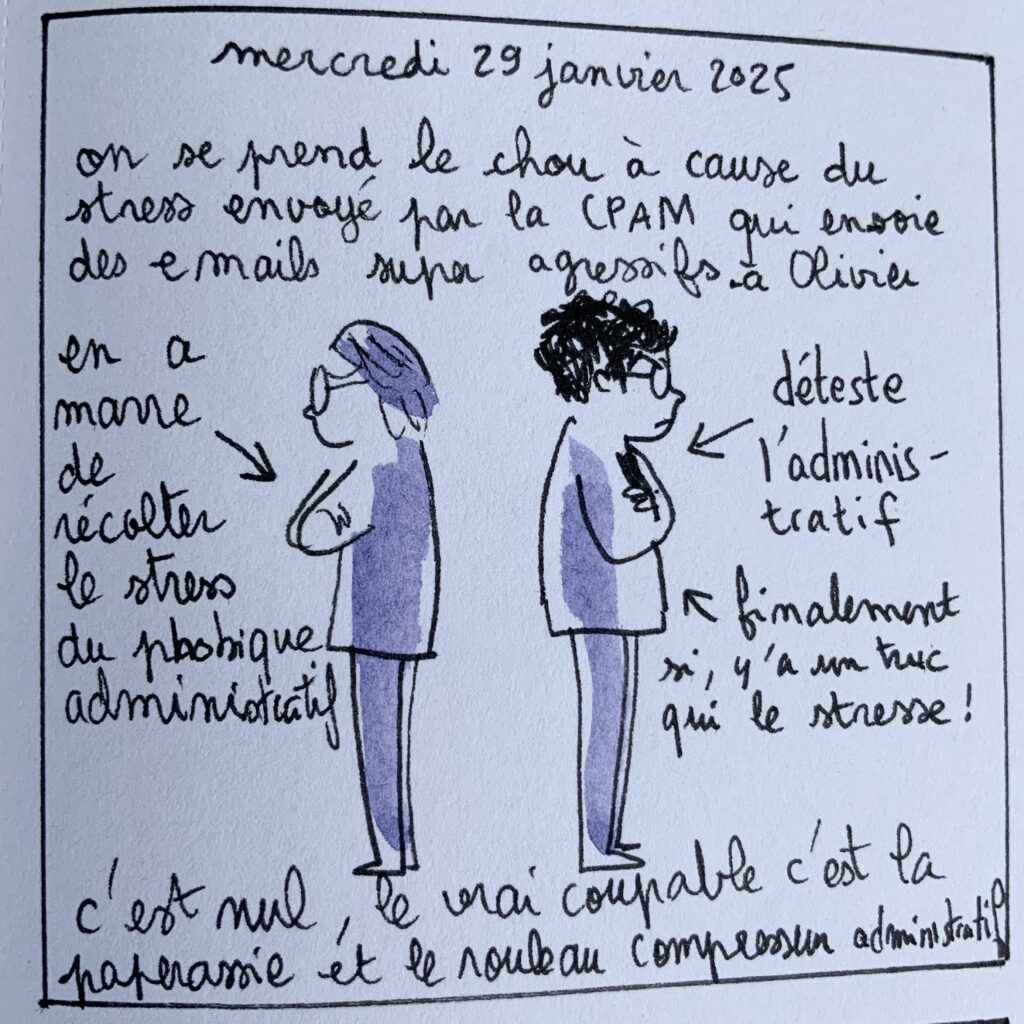 mercredi 29 janvier 2025
on se prend le chou à cause du
stress envoyé par la CPAM qui envoie
des emails super agressifs à Olivier
en a
marre
de
récolter
le stress
du phobique
administratif
déteste
l'adminis-
tratif
finalement
si, y'a un truc
qui le stresse !
c'est nul, le vrai coupable c'est la
paperassie et le rouleau compresseur administratif